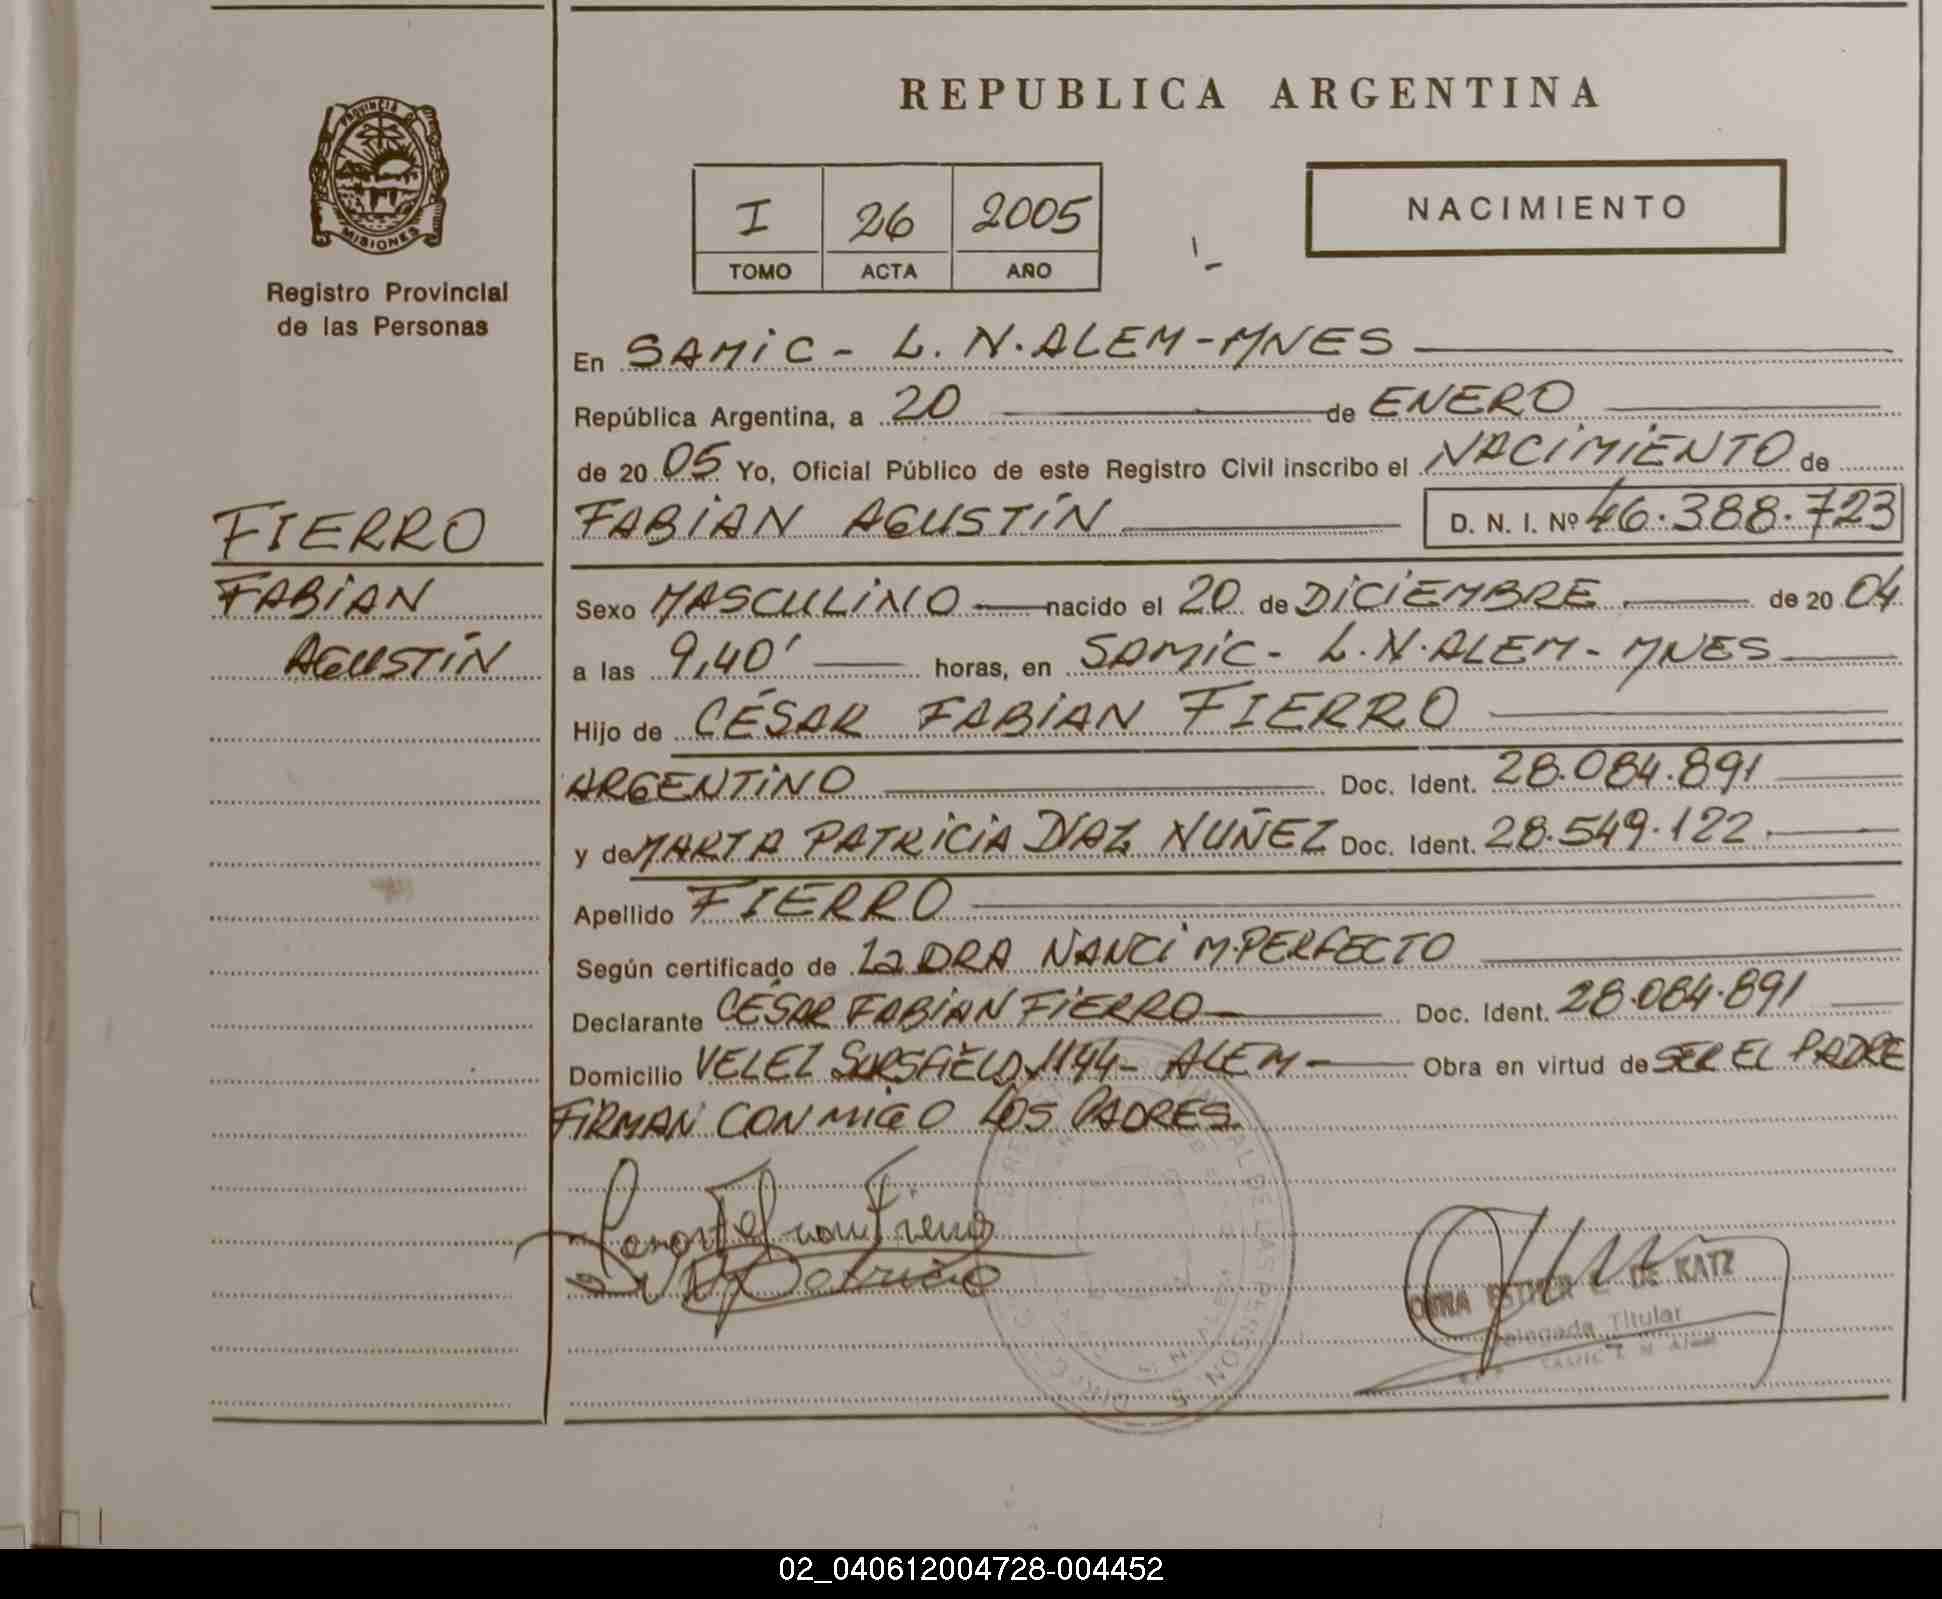 REPUBLICA ARGENTINA
PROVINCIA DE
MISIONES
Registro Provincial
de las Personas
I 26 2005
TOMO ACTA AÑO
NACIMIENTO
En SAMIC - L. N. ALEM - MNES
República Argentina, a 20 de ENERO
de 20 05 Yo, Oficial Público de este Registro Civil inscribo el NACIMIENTO de
FIERRO
FABIAN AGUSTÍN D. N. I. Nº 46.388.723
FABIAN
AGUSTÍN
Sexo MASCULINO nacido el 20 de DICIEMBRE de 20 04
a las 9,40' horas, en SAMIC - L. N. ALEM - MNES
Hijo de CÉSAR FABIAN FIERRO
ARGENTINO Doc. Ident. 28.084.891
y de MARTA PATRICIA DÍAZ NUÑEZ Doc. Ident. 28.549.122
Apellido FIERRO
Según certificado de La DRA NANCI M. PERFECTO
Declarante CÉSAR FABIAN FIERRO Doc. Ident. 28.084.891
Domicilio VELEZ SARSFIELD 1144 - ALEM Obra en virtud de SER EL PADRE
FIRMAN CONMIGO LOS PADRES.
ESTHER DE KATZ
Delegada Titular
02_040612004728-004452